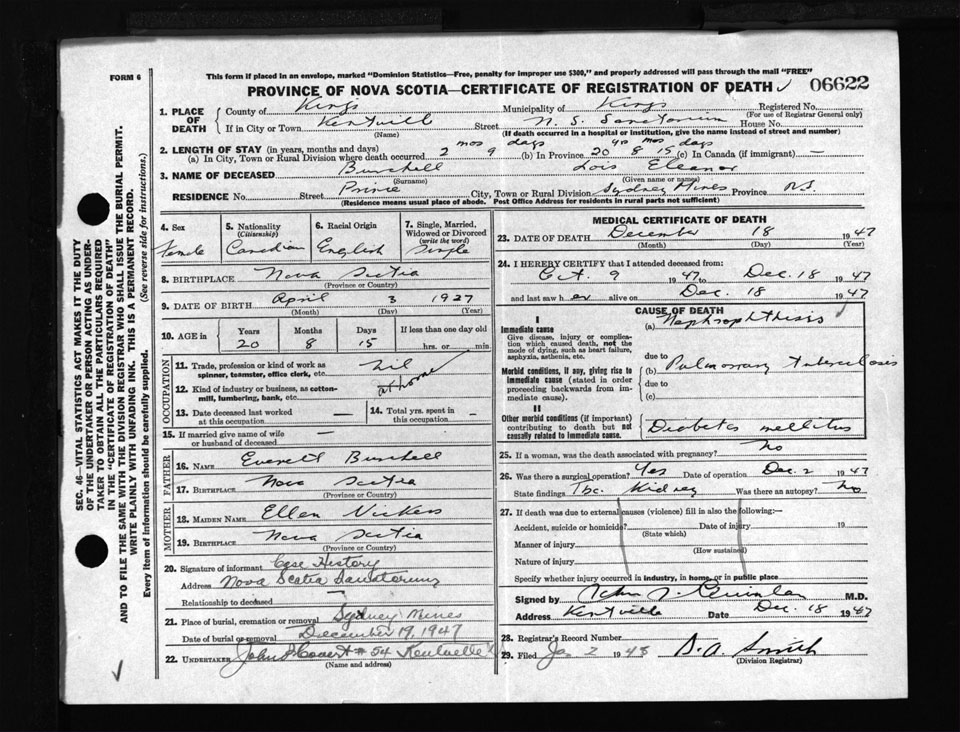 FORM 6
This form if placed in an envelope, marked "Dominion Statistics—Free, penalty for improper use $300," and properly addressed will pass through the mail "FREE"
PROVINCE OF NOVA SCOTIA—CERTIFICATE OF REGISTRATION OF DEATH 06622
1. PLACE OF DEATH County of Kings Municipality of Kings Registered No.
(For use of Registrar General only)
If in City or Town Kentville Street N. S. Sanatorium House No.
(Name) (If death occurred in a hospital or institution, give the name instead of street and number)
2. LENGTH OF STAY (in years, months and days)
(a) In City, Town or Rural Division where death occurred 2 mos 9 days (b) In Province 20 yrs 8 mos 15 days (c) In Canada (if immigrant) —
3. NAME OF DECEASED Burchell Lois Eleanor
(Surname) (Given name or names)
RESIDENCE No. Street Prince City, Town or Rural Division Sydney Mines Province N.S.
(Residence means usual place of abode. Post Office Address for residents in rural parts not sufficient)
SEC. 46—VITAL STATISTICS ACT MAKES IT THE DUTY
OF THE UNDERTAKER OR PERSON ACTING AS UNDER-
TAKER TO OBTAIN ALL THE PARTICULARS REQUIRED
IN THE "CERTIFICATE OF REGISTRATION OF DEATH"
AND TO FILE THE SAME WITH THE DIVISION REGISTRAR WHO SHALL ISSUE THE BURIAL PERMIT.
WRITE PLAINLY WITH UNFADING INK. THIS IS A PERMANENT RECORD.
Every item of Information should be carefully supplied. (See reverse side for instructions.)
4. Sex Female
5. Nationality (Citizenship) Canadian
6. Racial Origin English
7. Single, Married, Widowed or Divorced (write the word) Single
8. BIRTHPLACE Nova Scotia
(Province or Country)
9. DATE OF BIRTH April 3 1927
(Month) (Day) (Year)
10. AGE in Years Months Days If less than one day old
20 8 15 hrs. or min.
OCCUPATION
11. Trade, profession or kind of work as spinner, teamster, office clerk, etc. nil
12. Kind of industry or business, as cotton-mill, lumbering, bank, etc. at home
13. Date deceased last worked at this occupation —
14. Total yrs. spent in this occupation —
15. If married give name of wife or husband of deceased —
FATHER
16. NAME Everett Burchell
17. BIRTHPLACE Nova Scotia
MOTHER
18. MAIDEN NAME Ellen Vickers
19. BIRTHPLACE Nova Scotia
(Province or Country)
20. Signature of informant Case History
Address Nova Scotia Sanatorium
Relationship to deceased —
21. Place of burial, cremation or removal Sydney Mines
Date of burial or removal December 19, 1947
22. UNDERTAKER # 54 Kentville
(Name and address)
MEDICAL CERTIFICATE OF DEATH
23. DATE OF DEATH December 18 1947
(Month) (Day) (Year)
24. I HEREBY CERTIFY that I attended deceased from:
Oct. 9 1947 to Dec. 18 1947
and last saw her alive on Dec. 18 1947
CAUSE OF DEATH
I
Immediate cause
Give disease, injury or complication which caused death, not the mode of dying, such as heart failure, asphyxia, asthenia, etc.
(a) Nephrophthisis
due to
Morbid conditions, if any, giving rise to immediate cause (stated in order proceeding backwards from immediate cause).
(b) Pulmonary Tuberculosis
due to
(c)
II
Other morbid conditions (if important) contributing to death but not causally related to immediate cause.
Diabetes mellitus
25. If a woman, was the death associated with pregnancy? No
26. Was there a surgical operation? Yes Date of operation Dec. 2 1947
State findings Tbc. Kidney Was there an autopsy? No
27. If death was due to external causes (violence) fill in also the following:—
Accident, suicide or homicide? Date of injury 19
(State which)
Manner of injury
(How sustained)
Nature of injury
Specify whether injury occurred in industry, in home, or in public place
Signed by John J. Quinlan M.D.
Address Kentville Date Dec. 18 1947
28. Registrar's Record Number
29. Filed Ja. 2 1948 Smith
(Division Registrar)